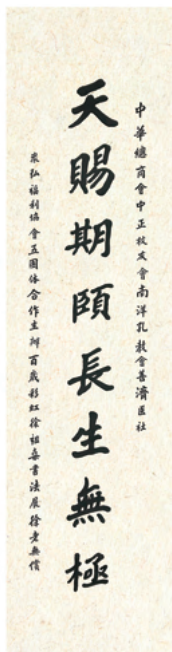 中華總商會中正校友會南洋孔教會善濟医社
天賜期頤長生無極
弘福利協會五團体合作主辦百歲彩虹徐祖燊書法展徐老無償